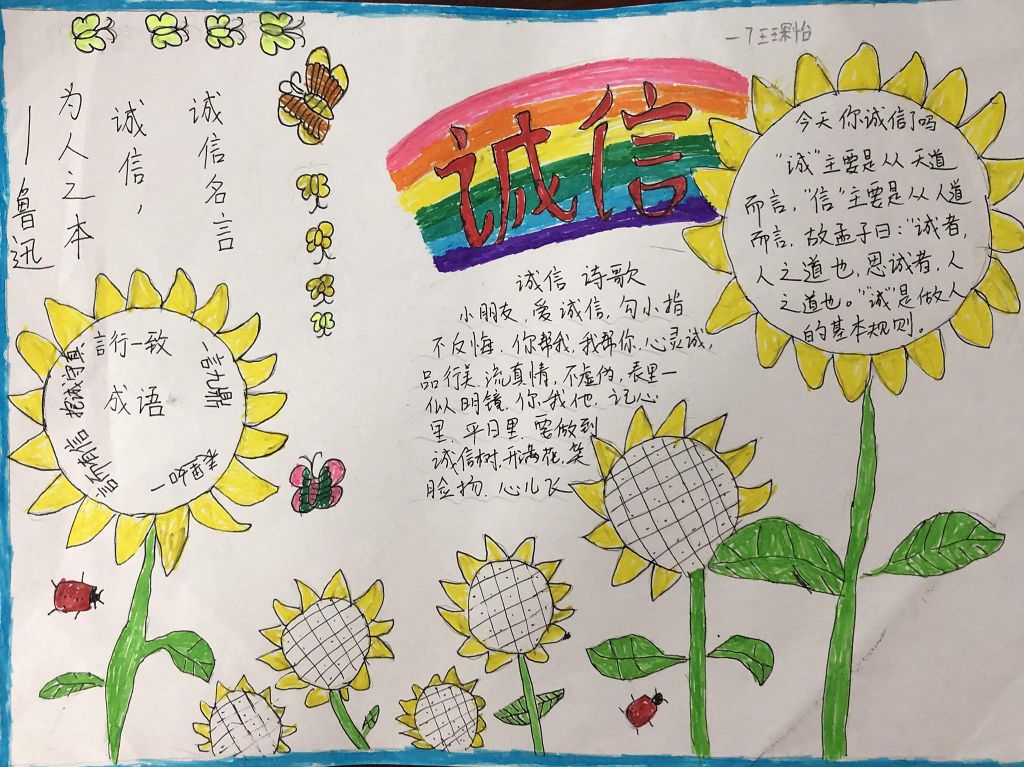 一7王珺怡
诚信
诚信名言
诚信，
为人之本
—鲁迅
今天你诚信了吗
"诚"主要是从天道
而言，"信"主要是从人道
而言，故孟子曰："诚者，
人之道也，思诚者，人
之道也。"诚"是做人
的基本规则。
诚信 诗歌
小朋友，爱诚信，勾小指
不反悔，你帮我，我帮你，心灵诚，
品行美，流真情，不虚伪，表里一
似明镜，你我他，记心
里，平日里，要做到
诚信树，开满花，笑
脸扬，心儿飞
言行一致
一言九鼎
成语
抱诚守真
言而有信
表里如一